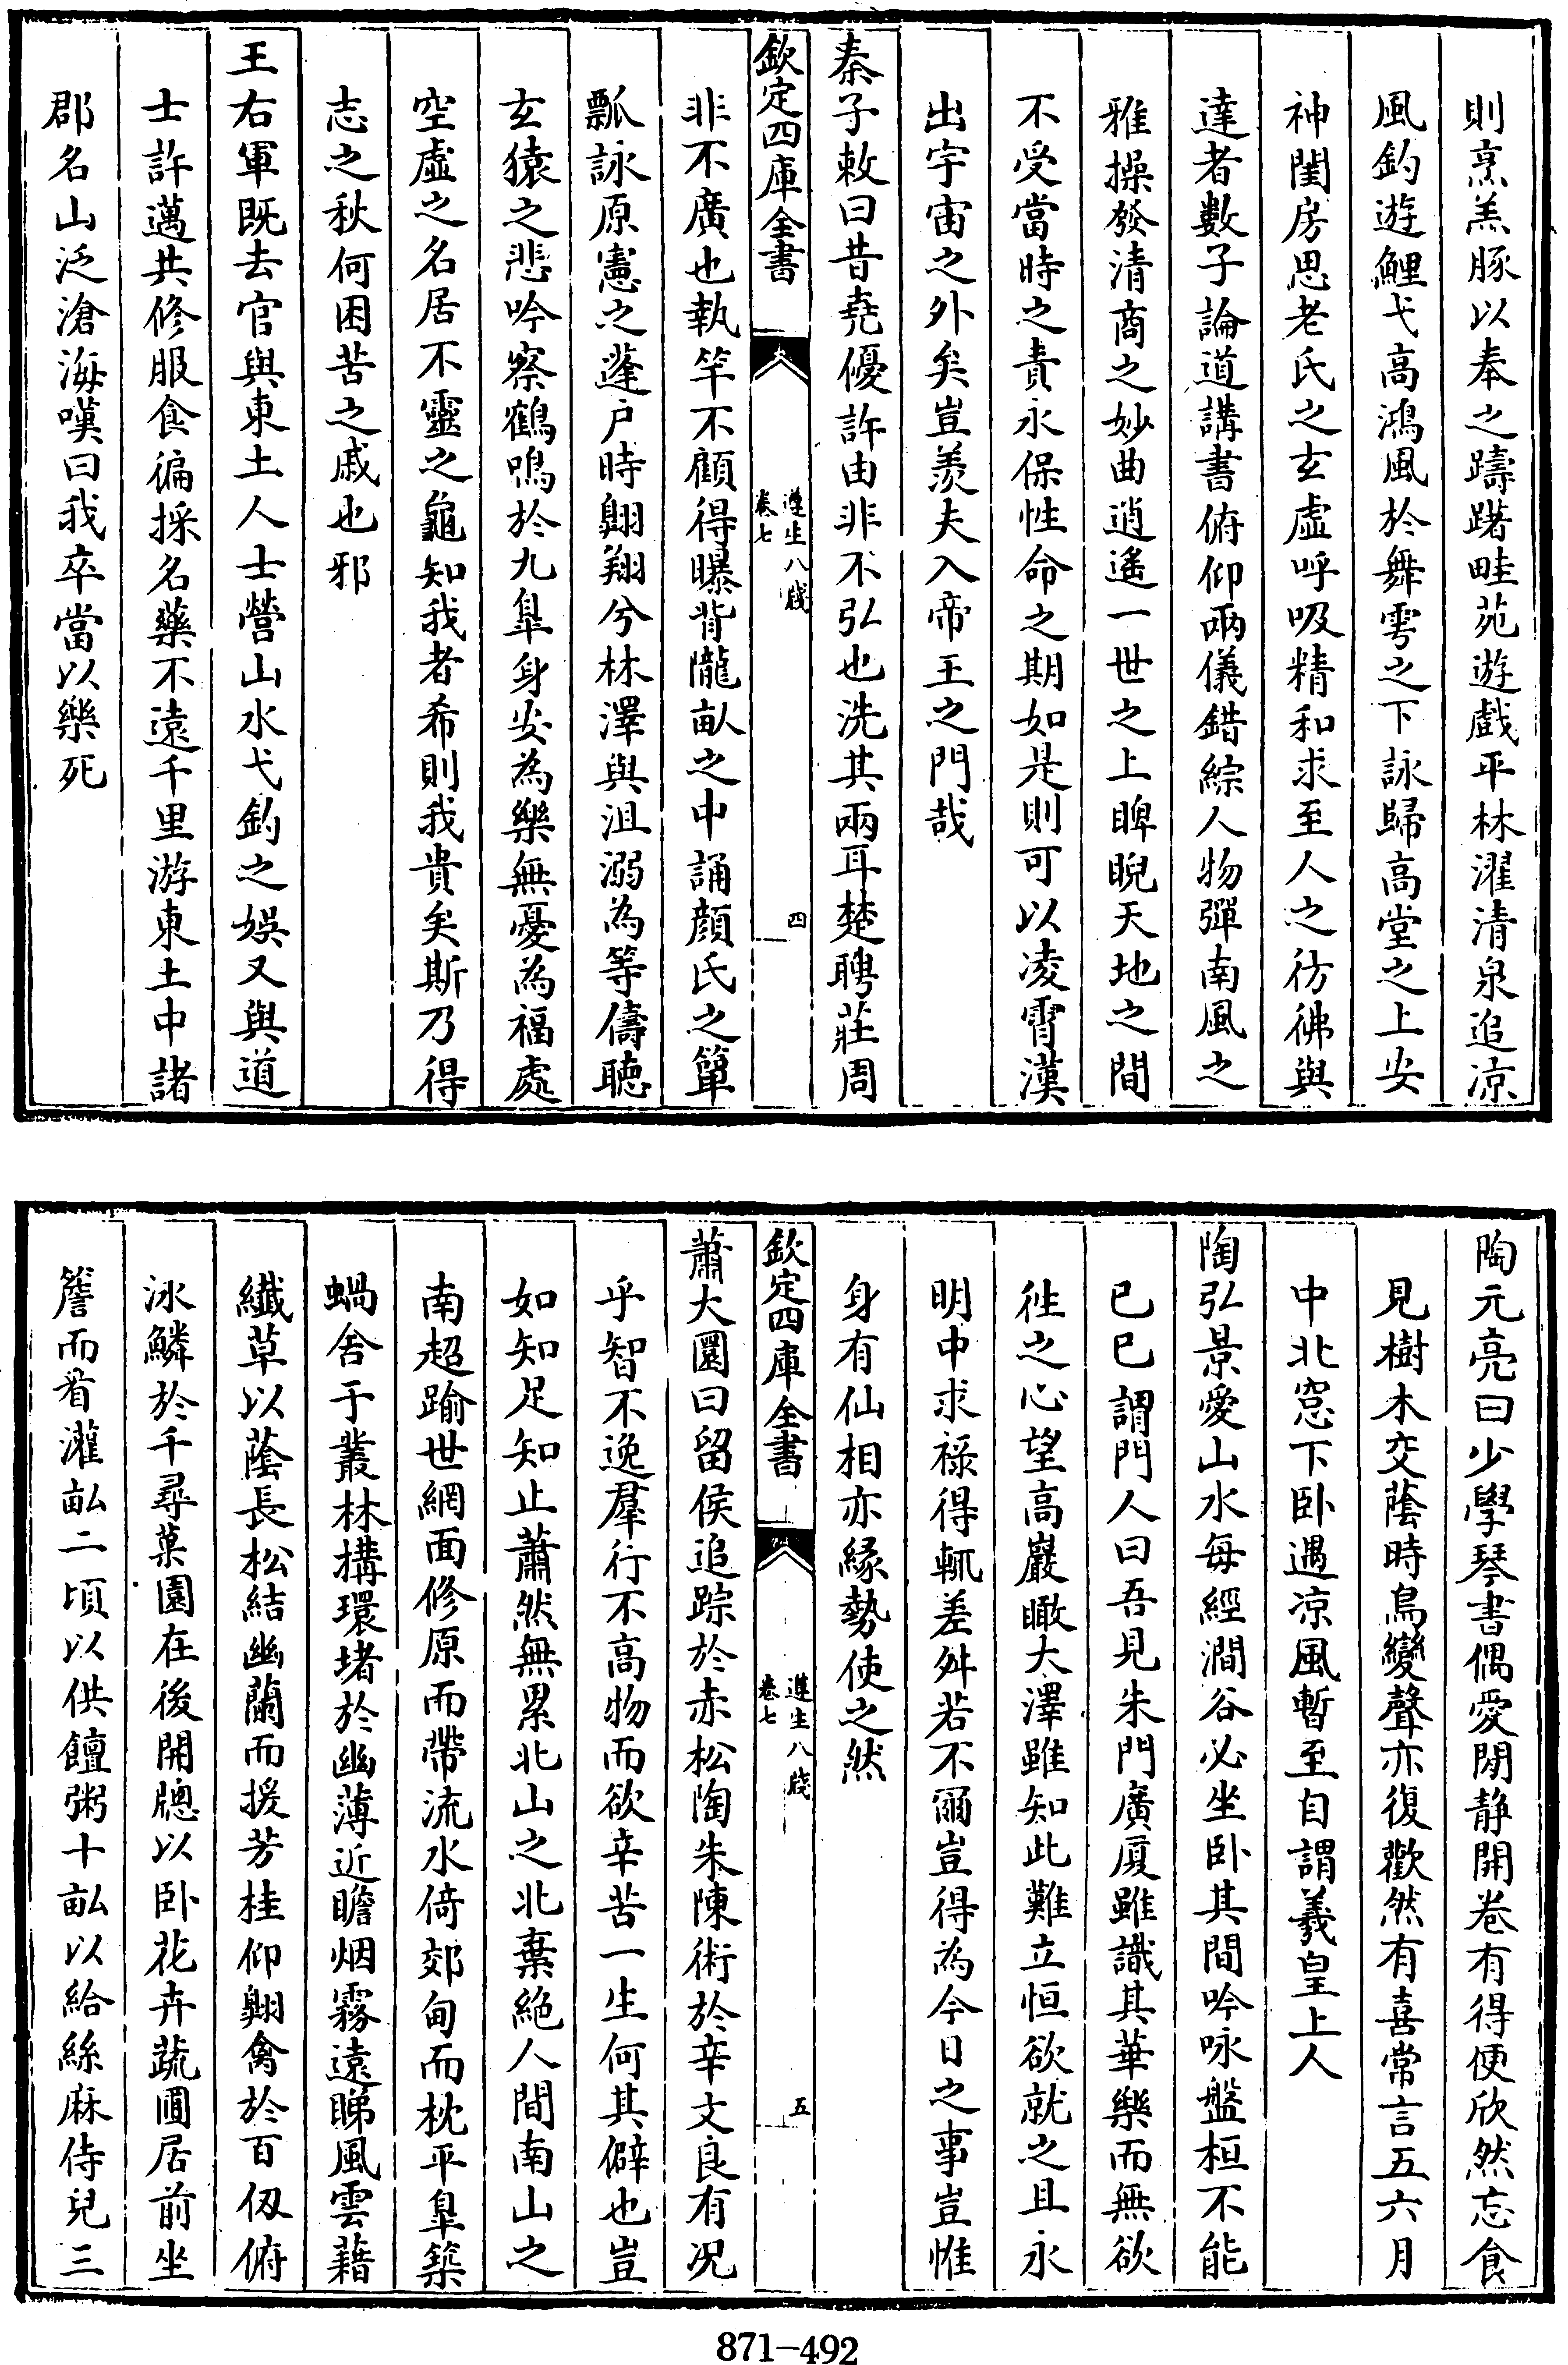 則烹羔豚以奉之躊躇畦苑遊戲平林濯清泉追凉
風釣遊鯉弋高鴻風於舞雩之下詠歸高堂之上安
神閨房思老氏之玄虛呼吸精和求至人之彷彿與
達者數子論道講書俯仰兩儀錯綜人物彈南風之
雅操發清商之妙曲逍遙一世之上睥睨天地之間
不受當時之責永保性命之期如是則可以凌霄漢
出宇宙之外矣豈羨夫入帝王之門哉
秦子敕曰昔堯優許由非不弘也洗其兩耳楚聘莊周
欽定四庫全書
遵生八牋
卷七
四
非不廣也執竿不顧得曝背隴畝之中誦顔氏之簞
瓢詠原憲之蓬户時翺翔兮林澤與沮溺為等儔聽
玄猿之悲吟察鶴鳴於九臯身安為樂無憂為福處
空虛之名居不靈之龜知我者希則我貴矣斯乃得
志之秋何困苦之戚也邪
王右軍既去官與東土人士營山水弋釣之娱又與道
士許邁共修服食徧採名藥不遠千里游東土中諸
郡名山泛滄海嘆曰我卒當以樂死
陶元亮曰少學琴書偶愛閒静開卷有得便欣然忘食
見樹木交蔭時鳥變聲亦復歡然有喜常言五六月
中北窓下卧遇凉風暫至自謂羲皇上人
陶弘景愛山水每經澗谷必坐卧其間吟咏盤桓不能
已已謂門人曰吾見朱門廣厦雖識其華樂而無欲
徃之心望高巖瞰大澤雖知此難立恒欲就之且永
明中求禄得輒差舛若不爾豈得為今日之事豈惟
身有仙相亦緣勢使之然
欽定四庫全書
遵生八牋
卷七
五
蕭大圜曰留侯追踪於赤松陶朱陳術於辛文良有况
乎智不逸羣行不高物而欲辛苦一生何其僻也豈
如知足知止蕭然無累北山之北棄絶人間南山之
南超踰世網面修原而帶流水倚郊甸而枕平臯築
蝸舍于叢林搆環堵於幽薄近瞻烟霧遠睇風雲藉
纎草以蔭長松結幽蘭而援芳桂仰翺禽於百仭俯
泳鱗於千尋菓園在後開牕以卧花卉蔬圃居前坐
簷而看灌畝二頃以供饘粥十畝以給絲麻侍兒三
871-492